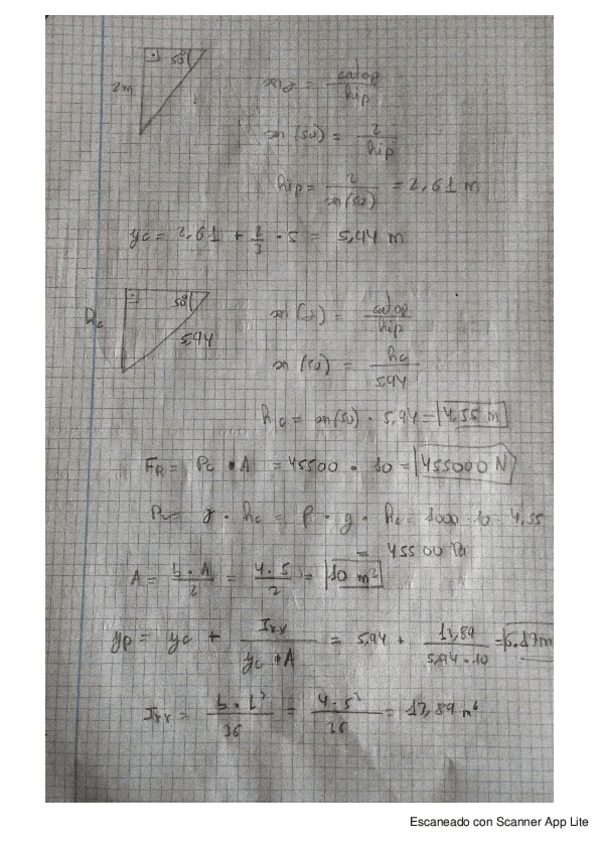 50°
2m
sen α = catop / hip
sen (50) = 2 / hip
hip = 2 / sen(50) = 2,61 m
yc = 2,61 + 2/3 · 5 = 5,94 m
50°
hc
5,94
sen (α) = catop / hip
sen (50) = hc / 5,94
hc = sen(50) · 5,94 = 4,55 m
FR = Pc · A = 45500 · 10 = 455000 N
Pc = γ · hc = ρ · g · hc = 1000 · 10 · 4,55
= 45500 Pa
A = b · A / 2 = 4 · 5 / 2 = 10 m²
yp = yc + Ixx / yc · A = 5,94 + 13,89 / 5,94 · 10 = 6.17m
Ixx = b · L³ / 36 = 4 · 5³ / 36 = 13,89 m⁴
Escaneado con Scanner App Lite